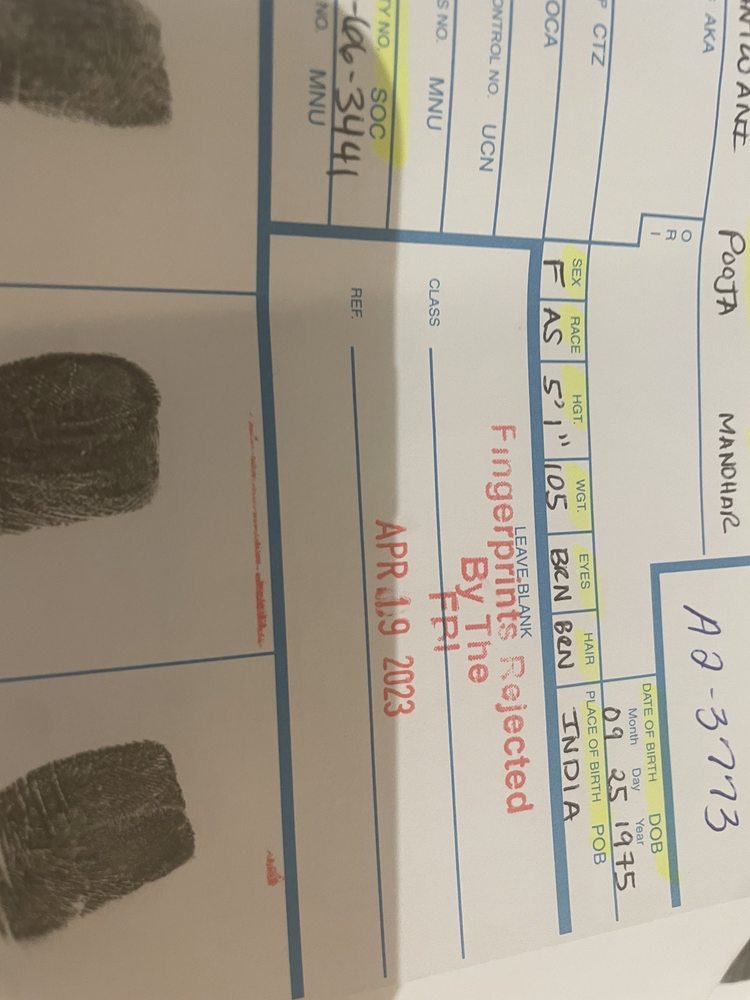 POOJA MANOHAR
AKA
O
R
I
A2-3773
DATE OF BIRTH DOB
Month Day Year
09 25 1975
CTZ
SEX RACE HGT. WGT. EYES HAIR PLACE OF BIRTH POB
F AS 5'1" 105 BRN BRN INDIA
OCA
UCN
LEAVE BLANK
Fingerprints Rejected
By The
FBI
APR 19 2023
MNU
CLASS
NO. SOC
-66-3441
REF.
NO. MNU